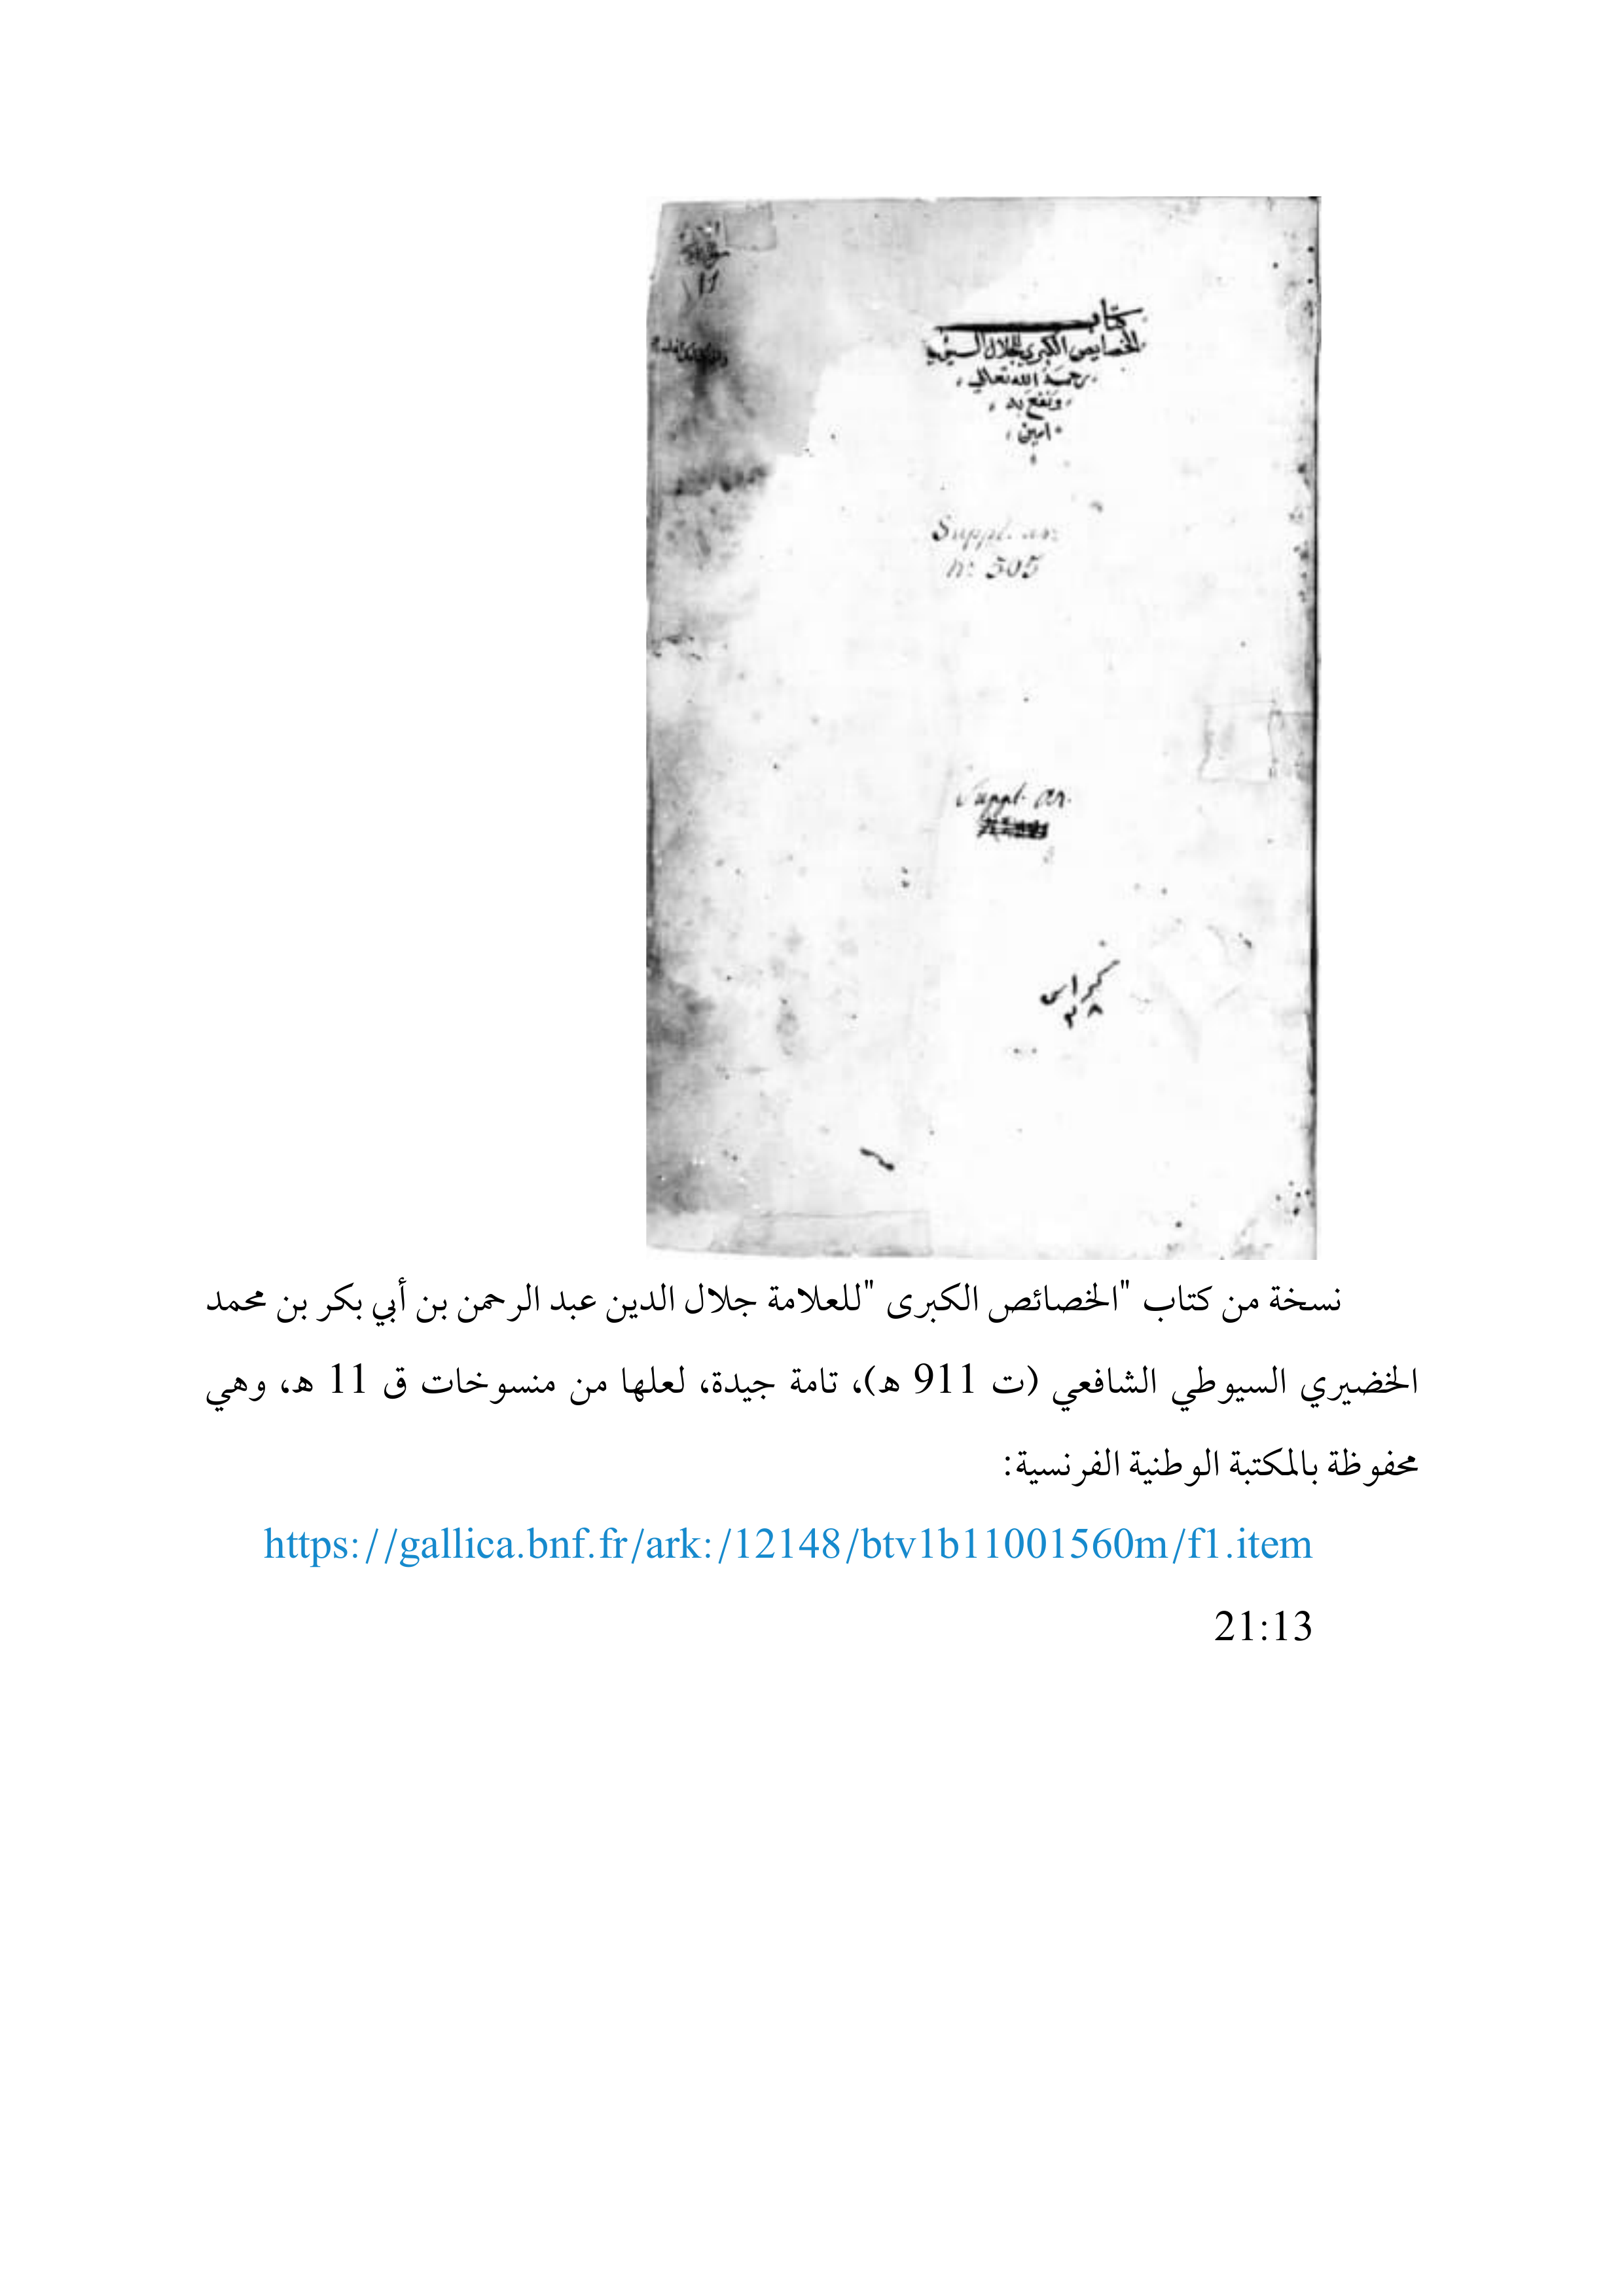 كتاب
الخصايص الكبري للجلال السيوطي
رحمه الله تعالي
ونفع به
امين
Suppl. ar.
n: 505
Suppl. ar.
كراس
٣٨
نسخة من كتاب "الخصائص الكبرى "للعلامة جلال الدين عبد الرحمن بن أبي بكر بن محمد
الخضيري السيوطي الشافعي (ت 911 هـ)، تامة جيدة، لعلها من منسوخات ق 11 هـ، وهي
محفوظة بالمكتبة الوطنية الفرنسية:
https://gallica.bnf.fr/ark:/12148/btv1b11001560m/f1.item
21:13